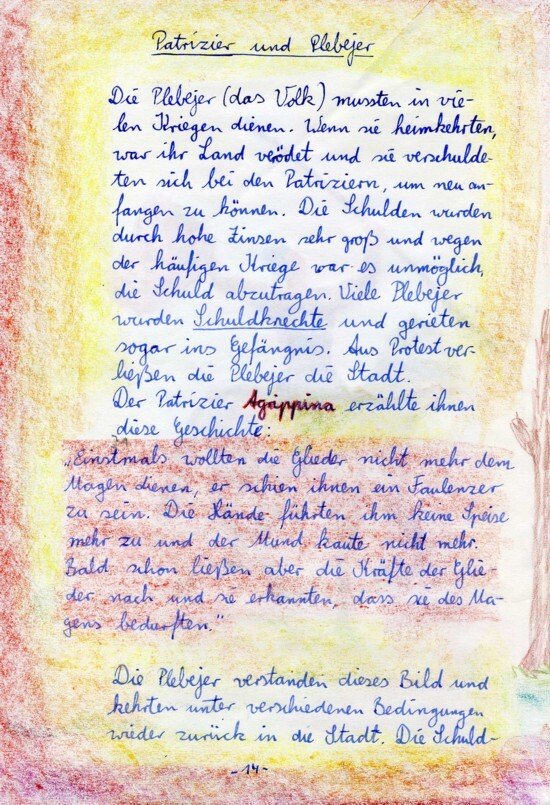 Patrizier und Plebejer
Die Plebejer (das Volk) mussten in vie-
len Kriegen dienen. Wenn sie heimkehrten,
war ihr Land verödet und sie verschulde-
ten sich bei den Patriziern, um neu an-
fangen zu können. Die Schulden wurden
durch hohe Zinsen sehr groß und wegen
der häufigen Kriege war es unmöglich,
die Schuld abzutragen. Viele Plebejer
wurden Schuldknechte und gerieten
sogar ins Gefängnis. Aus Protest ver-
ließen die Plebejer die Stadt.
Der Patrizier Agrippina erzählte ihnen
diese Geschichte:
„Einstmals wollten die Glieder nicht mehr dem
Magen dienen, er schien ihnen ein Faulenzer
zu sein. Die Hände führten ihm keine Speise
mehr zu und der Mund kaute nicht mehr.
Bald schon ließen aber die Kräfte der Glie-
der nach und sie erkannten, dass sie des Ma-
gens bedurften."
Die Plebejer verstanden dieses Bild und
kehrten unter verschiedenen Bedingungen
wieder zurück in die Stadt. Die Schuld-
- 14 -